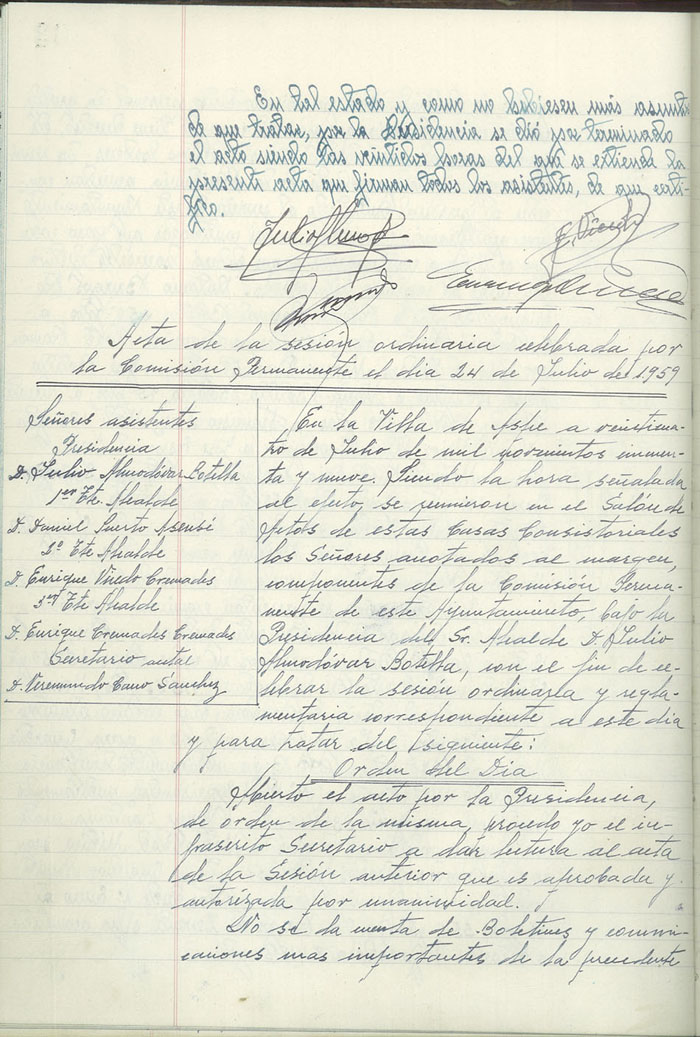 En tal estado y como no hubiesen más asuntos
de que tratar, por la Presidencia se dió por terminado
el acto siendo las veintidos horas del que se extiende la
presente acta que firman todos los asistentes, de que certi-
fico.
Julio Almod
E. Vicedo
Acta de la sesión ordinaria celebrada por
la Comisión Permanente el dia 24 de Julio de 1959
Señores asistentes
Presidencia
D. Julio Almodóvar Botella
1er Tte. Alcalde
D. Daniel Puerto Asensi
2º Tte Alcalde
D. Enrique Vicedo Cremades
3er Tte Alcalde
D. Enrique Cremades Cremades
Secretario actal
D. Veremundo Cano Sánchez
En la Villa de Aspe a veinticua-
tro de Julio de mil novecientos cincuen-
ta y nueve. Siendo la hora señalada
al efecto, se reunieron en el Salón de
Actos de estas Casas Consistoriales
los Señores anotados al margen,
componentes de la Comisión Perma-
nente de este Ayuntamiento, bajo la
Presidencia del Sr. Alcalde D. Julio
Almodóvar Botella, con el fin de ce-
lebrar la sesión ordinaria y regla-
mentaria correspondiente a este dia
y para tratar del siguiente:
Orden del Dia
Abierto el acto por la Presidencia,
de órden de la misma, procedo yo el in-
frascrito Secretario a dar lectura al acta
de la Sesión anterior que es aprobada y
autorizada por unanimidad.
No se da cuenta de Boletines y comuni-
caciones mas importantes de la precedente